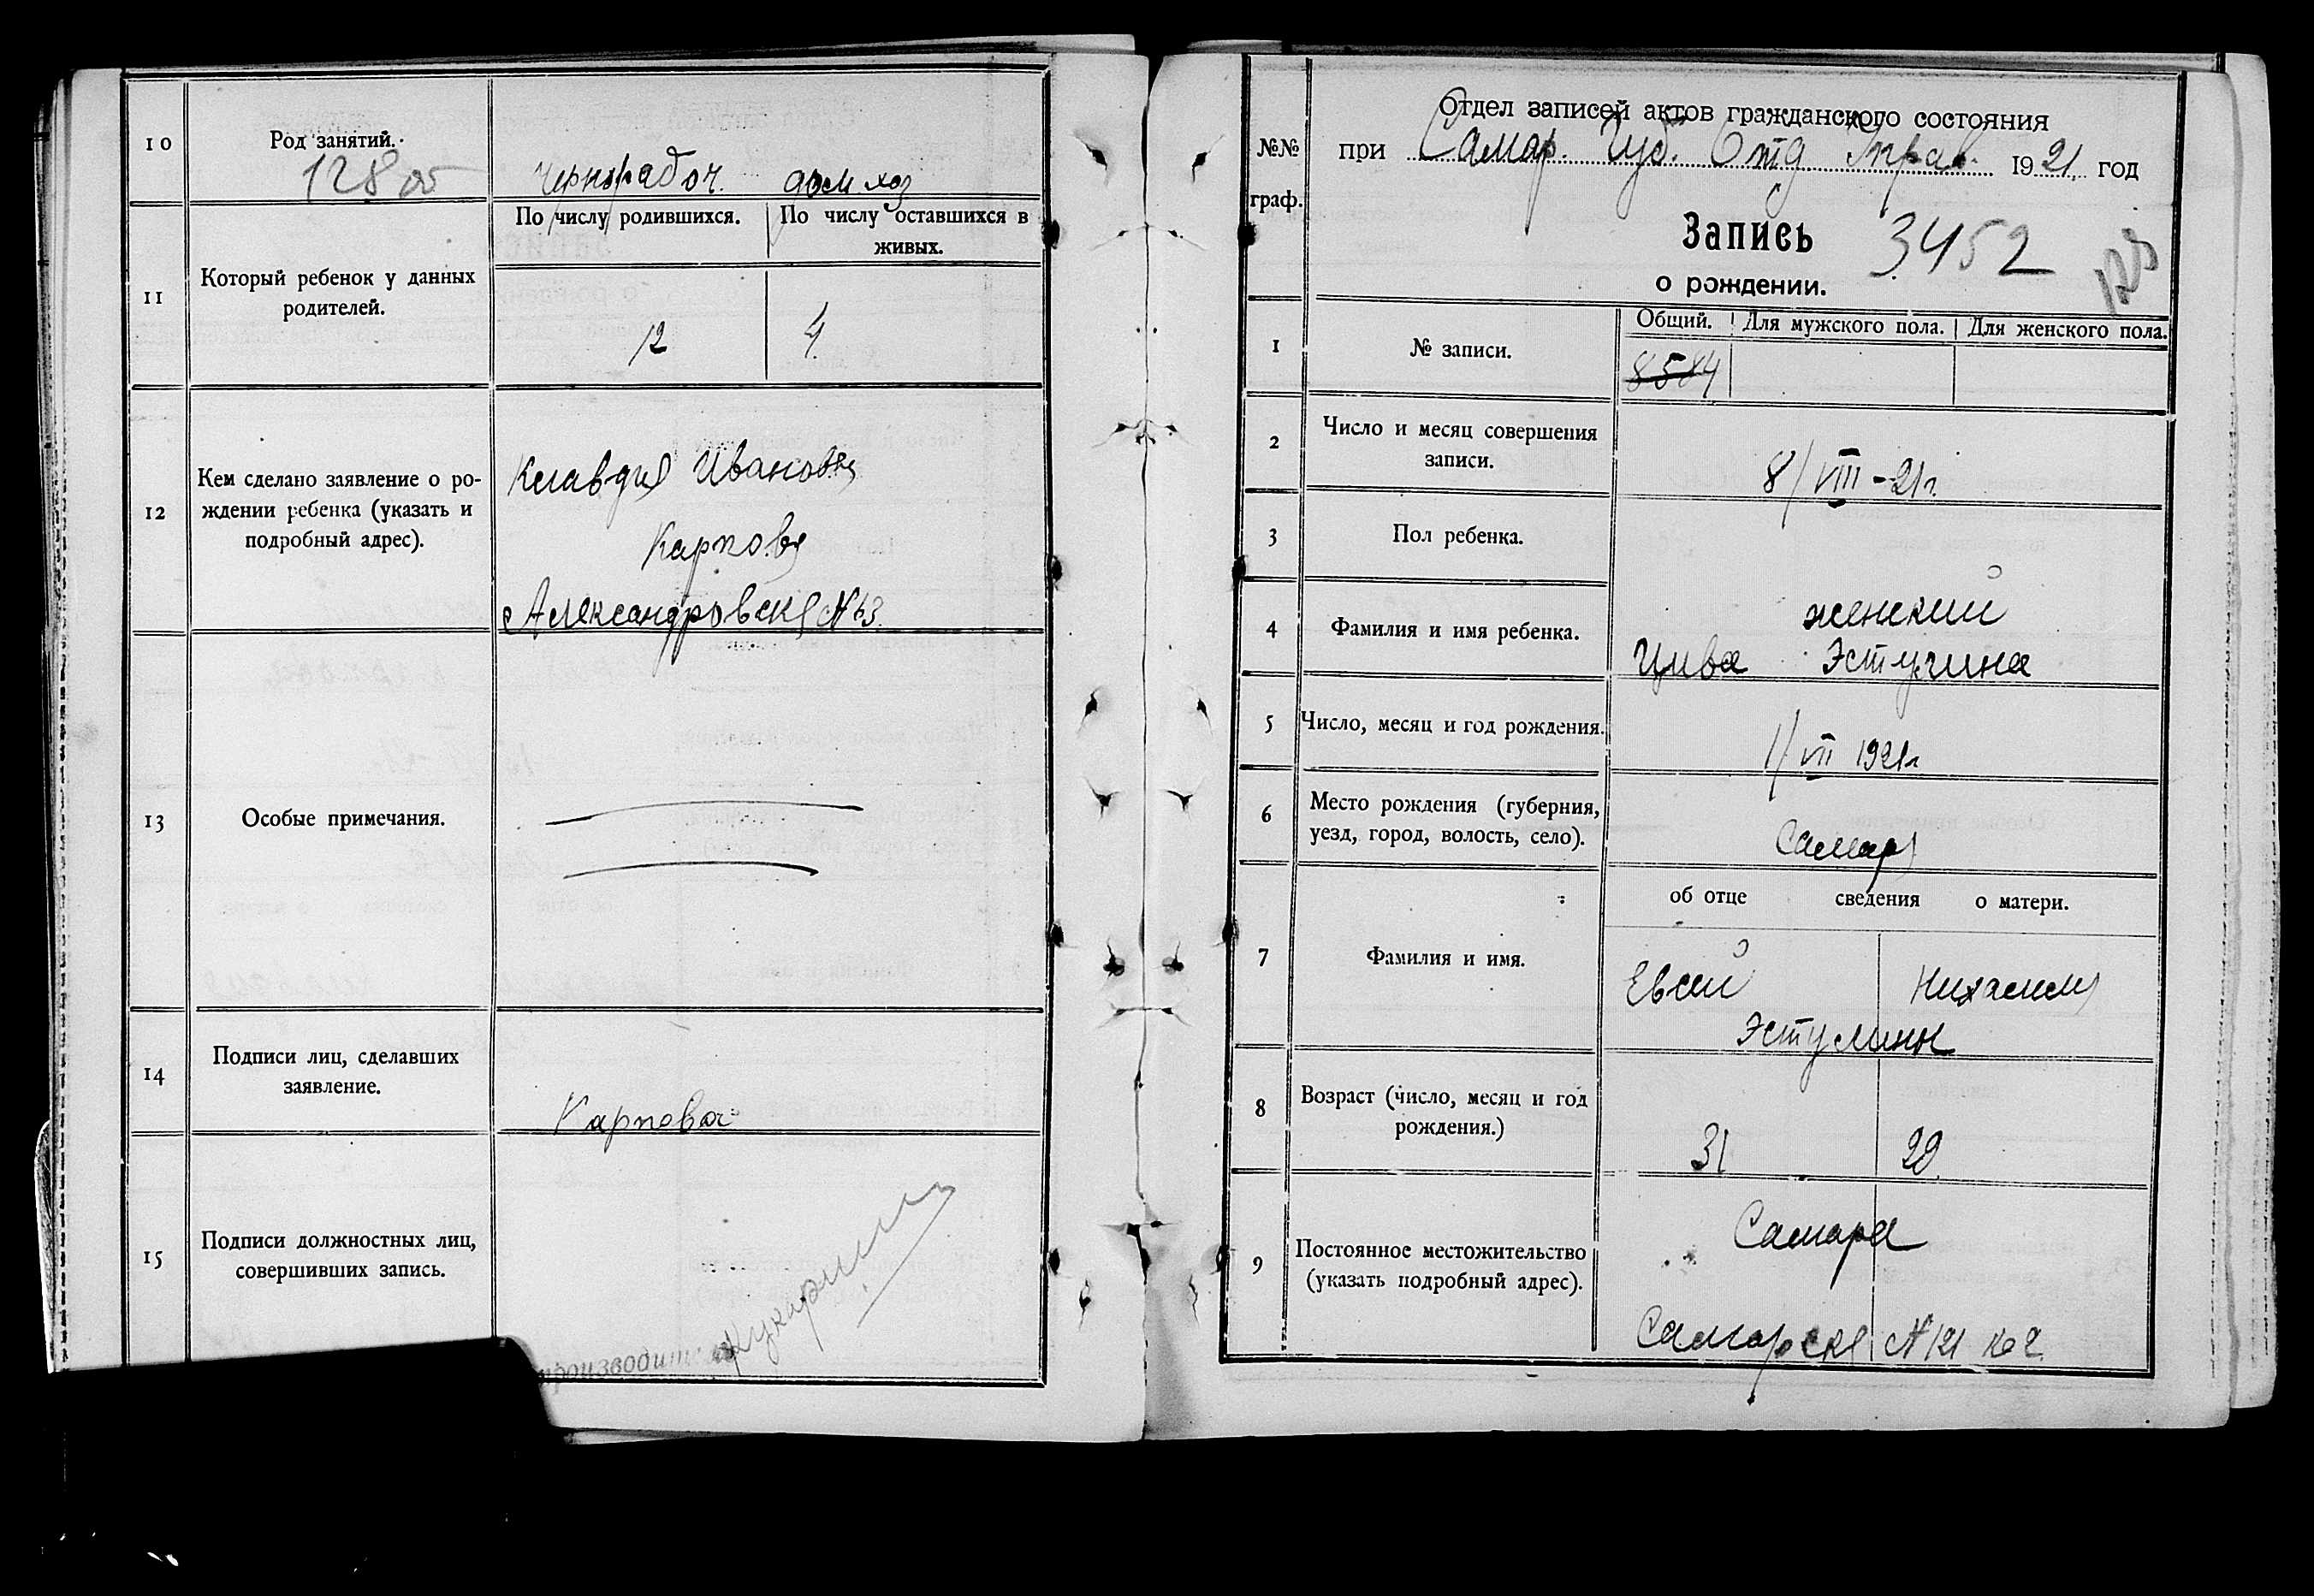 10
Род занятий.
128 об
чернорабоч. дом. хоз
11
Который ребенок у данных
родителей.
По числу родившихся.
По числу оставшихся в
живых.
12
4
12
Кем сделано заявление о ро-
ждении ребенка (указать и
подробный адрес).
Клавдия Ивановна
Карпова
Александровская № 63
13
Особые примечания.
14
Подписи лиц, сделавших
заявление.
Карпова
15
Подписи должностных лиц,
совершивших запись.
№№
граф.
Отдел записей актов гражданского состояния
при Самар. Губ. Отд Управ. 1921 год
Запись 3452
о рождении.
129
1
№ записи.
Общий. Для мужского пола. Для женского пола.
8584
2
Число и месяц совершения
записи.
8/VIII-21г.
3
Пол ребенка.
женский
4
Фамилия и имя ребенка.
Цива Эстулина
5
Число, месяц и год рождения.
1/VII 1921г
6
Место рождения (губерния,
уезд, город, волость, село).
Самара
об отце сведения о матери.
7
Фамилия и имя.
Евсей Нихамия
Эстулины
8
Возраст (число, месяц и год
рождения.)
31 29
9
Постоянное местожительство
(указать подробный адрес).
Самара
Самарская № 121 кв 2